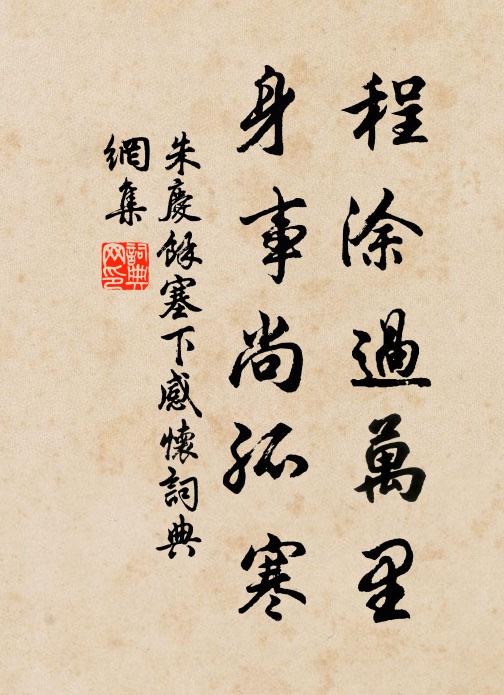 程涂過萬里
身事尚孤寒
朱慶餘塞下感懷詞典
網集
詞典
网印